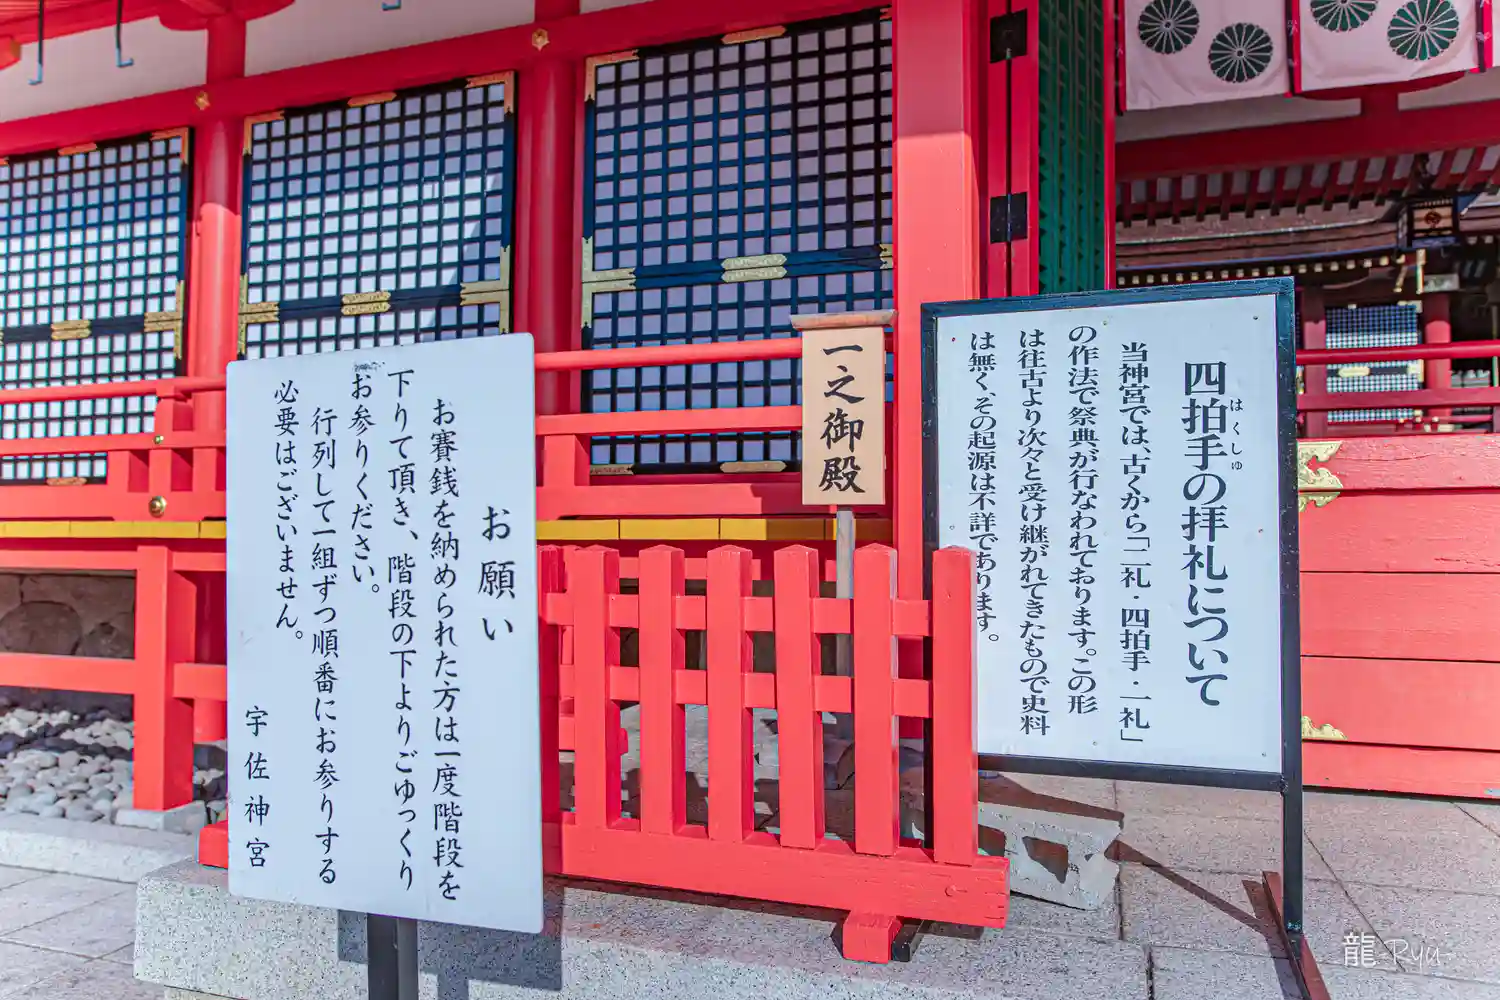 お願い
お賽銭を納められた方は一度階段を
下りて頂き、階段の下よりごゆっくり
お参りください。
行列して一組ずつ順番にお参りする
必要はございません。
宇佐神宮
一之御殿
四拍手の拝礼について
はくしゅ
当神宮では、古くから「二礼・四拍手・一礼」
の作法で祭典が行なわれております。この形
は往古より次々と受け継がれてきたもので史料
は無く、その起源は不詳であります。
龍 Ryu